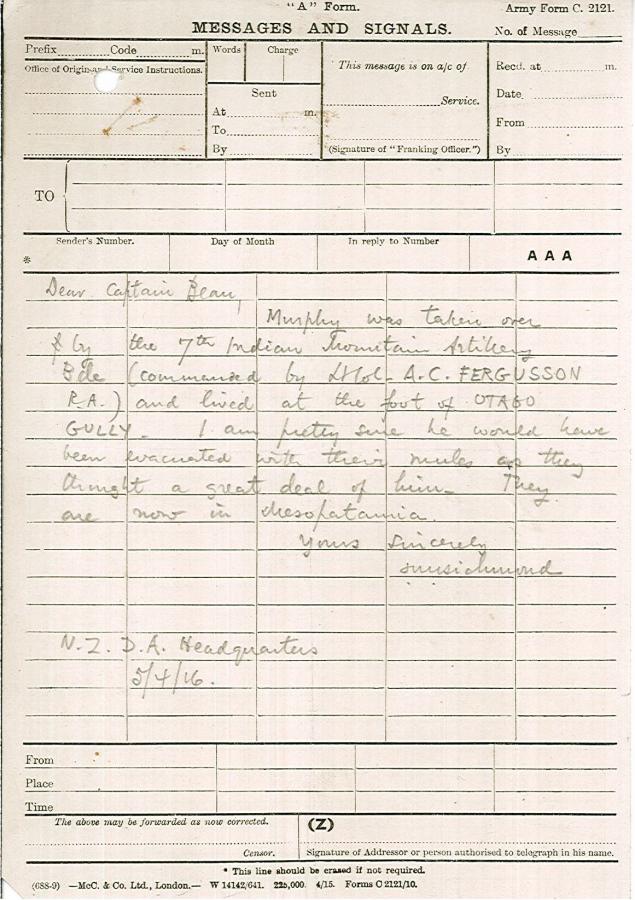 "A" Form.
Army Form C. 2121.
MESSAGES AND SIGNALS.
No. of Message
Prefix Code m.
Words Charge
This message is on a/c of
Recd. at m.
Office of Origin and Service Instructions.
Sent
Date
At m.
Service.
To
From
By
(Signature of "Franking Officer.")
By
TO
Sender's Number.
Day of Month
In reply to Number
* AAA
Dear Captain Bean,
Murphy was taken over
by the 7th Indian Mountain Artillery
Bde (commanded by Lt Col. A.C. FERGUSSON
R.A.) and lived at the foot of OTAGO
GULLY. I am pretty sure he would have
been evacuated with their mules as they
thought a great deal of him. They
are now in Mesopatamia.
Yours sincerely
N.Z. D.A. Headquarters
5/4/16.
From
Place
Time
The above may be forwarded as now corrected.
(Z)
Censor.
Signature of Addressor or person authorised to telegraph in his name.
* This line should be erased if not required.
(688-9) —McC. & Co. Ltd., London.— W 14142/641. 225,000. 4/15. Forms C 2121/10.